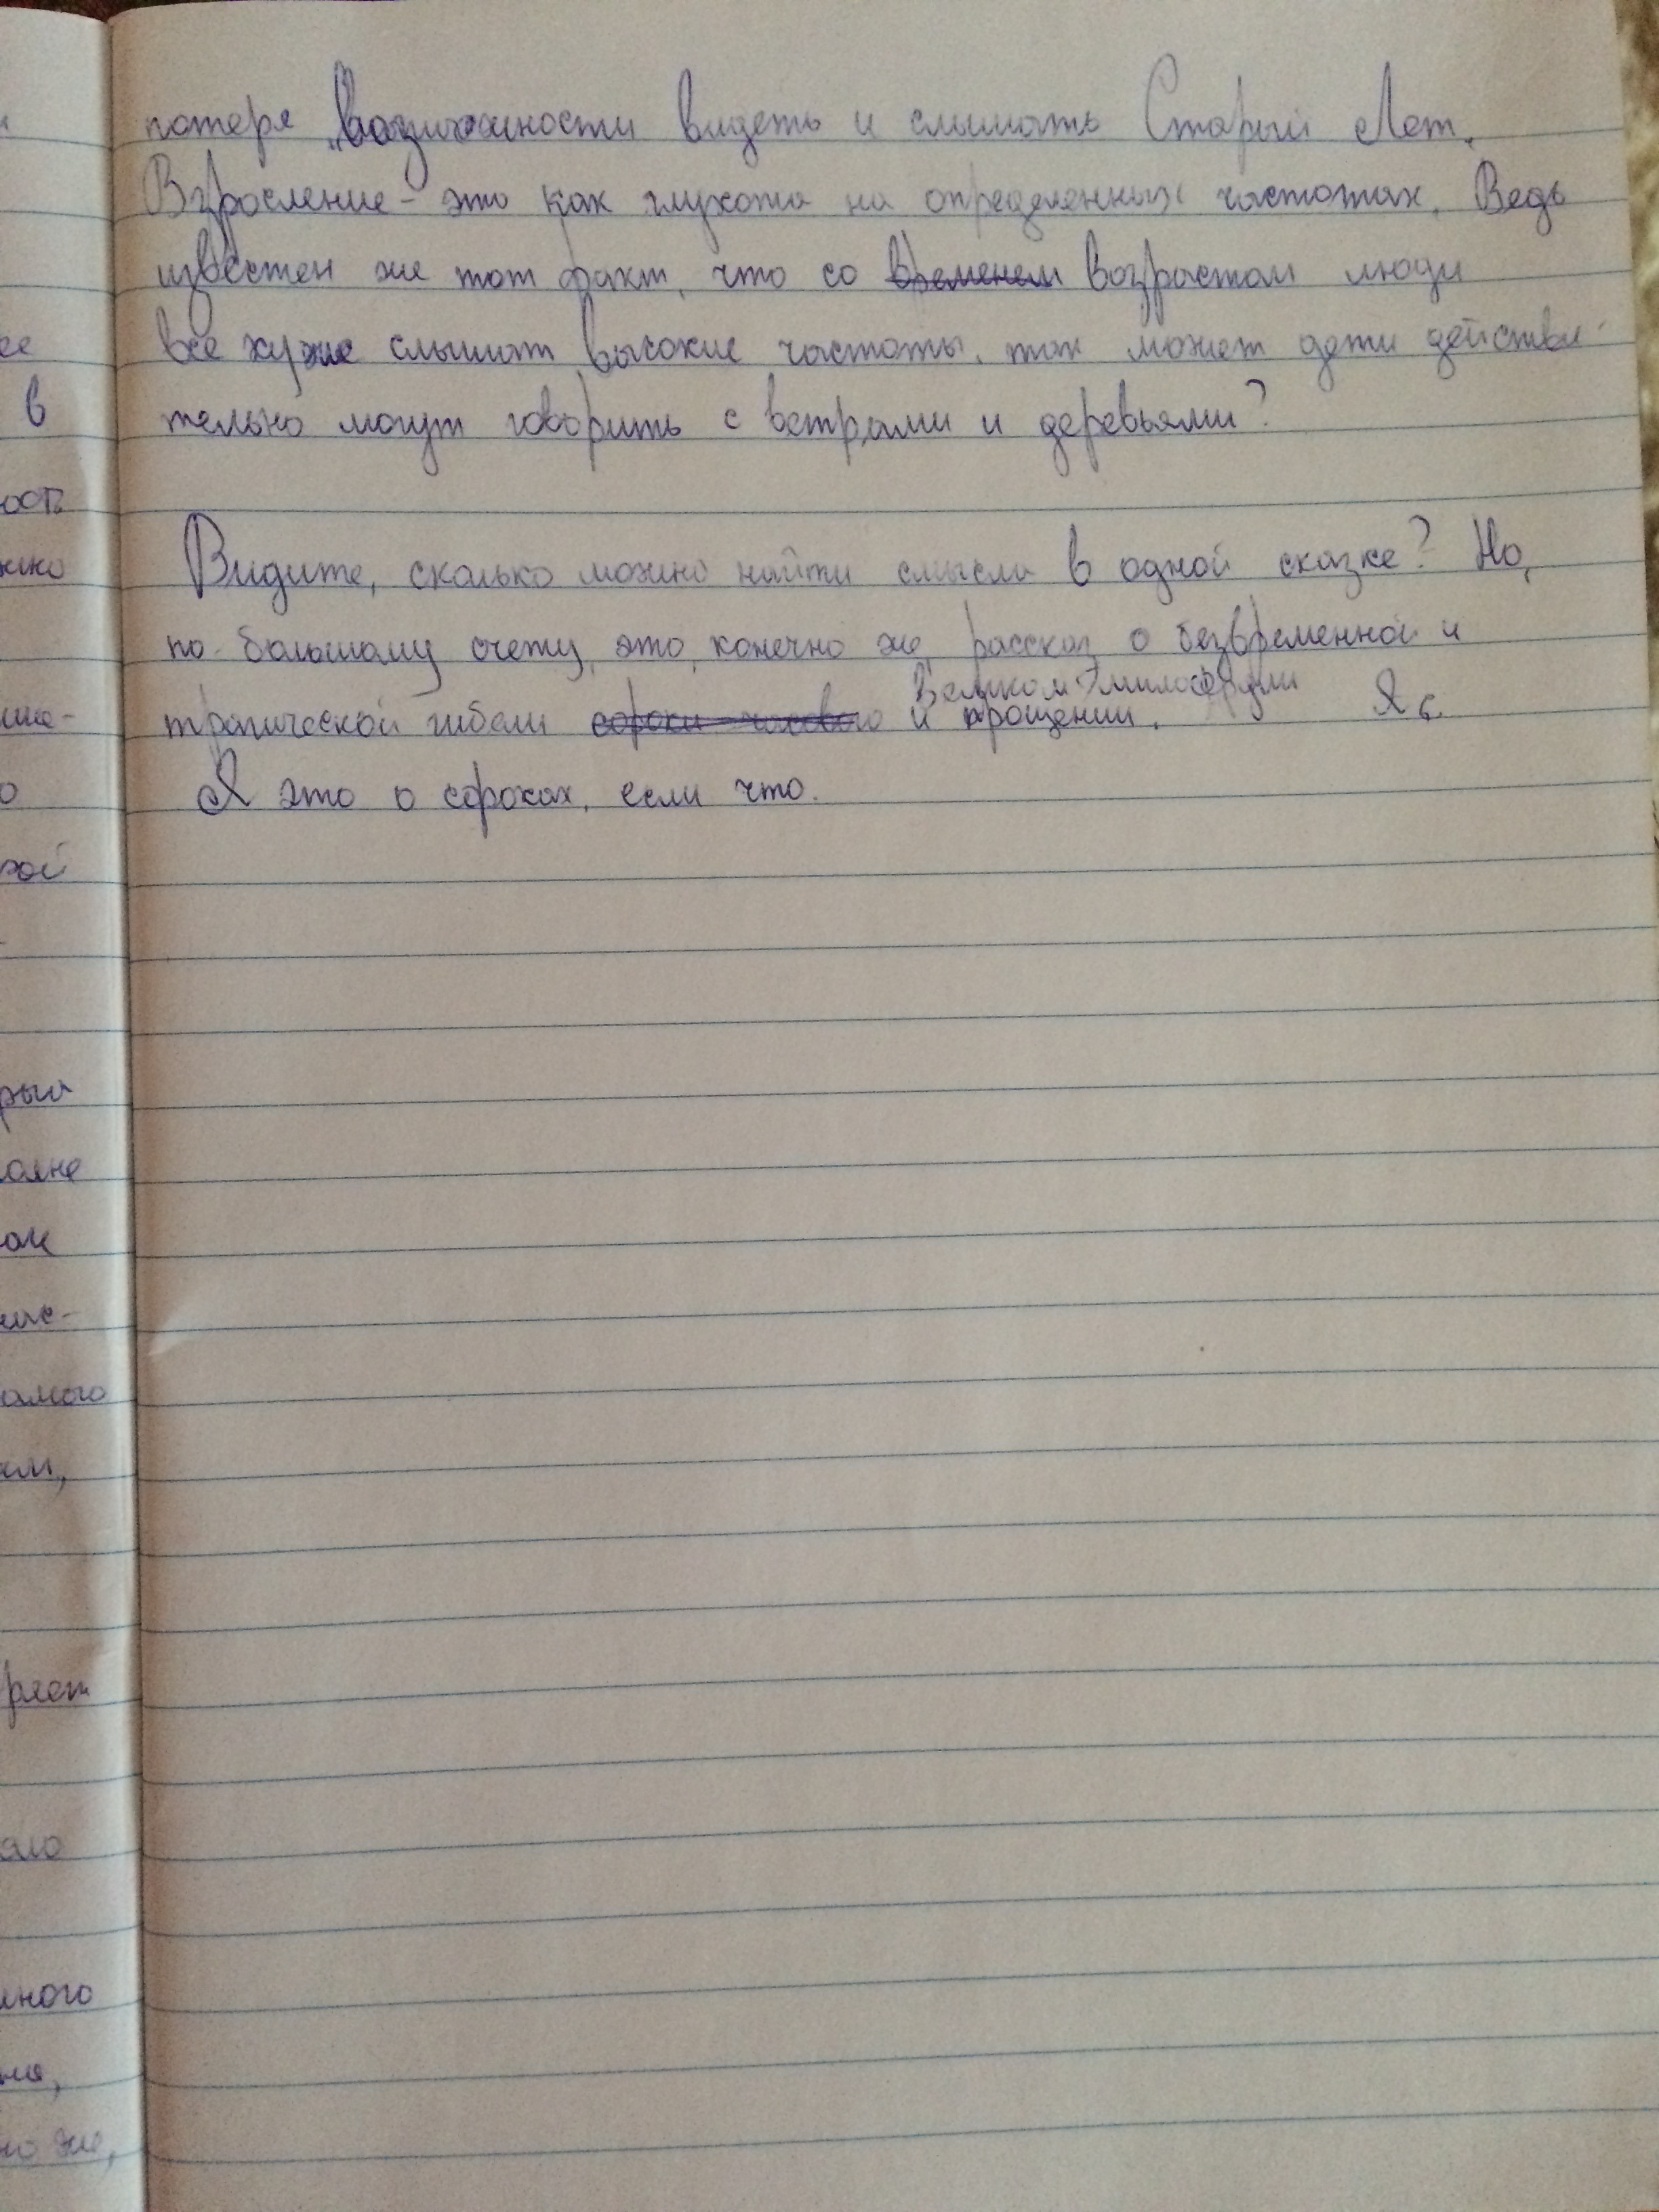 потеря возможности видеть и слышать Старый Лет.
Взросление - это как глухота на определенных частотах. Ведь
известен же тот факт, что со временем возрастом люди
все хуже слышат высокие частоты, так может дети действи-
тельно могут говорить с ветрами и деревьями?
Видите, сколько можно найти смысла в одной сказке? Но,
по большому счету, это, конечно же, рассказ о безвременной и
Великом Милосердии
трагической гибели сороки и прощении. Я с.
Я это о сороках, если что.
ее
в
ость
жно
ше-
о
рый
ак
амого
ям,
ряет
ало
много
ня,
но же,